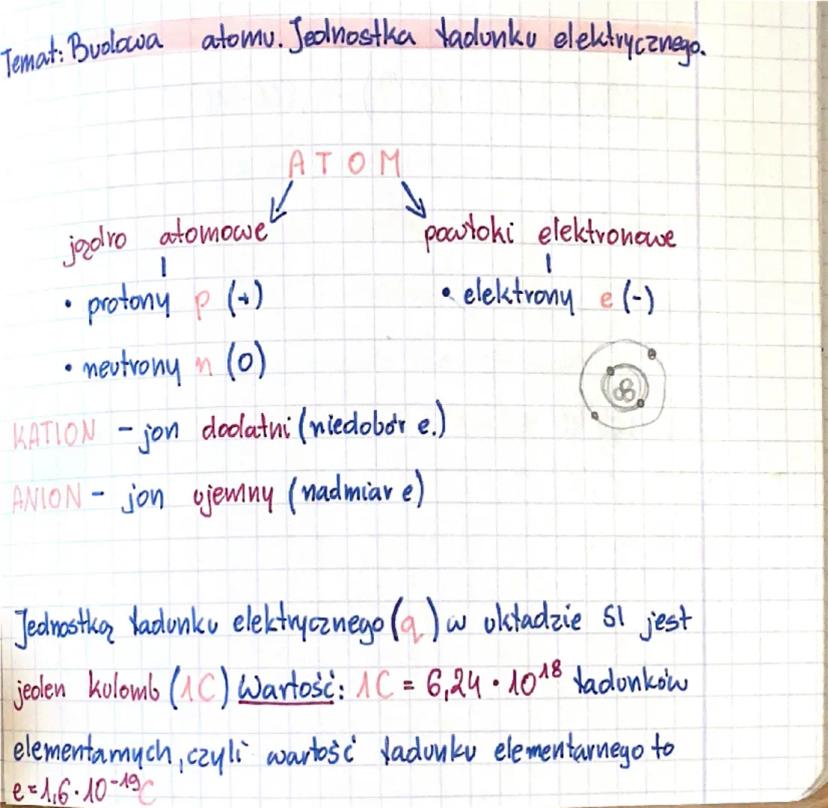 Temat: Budowa atomu. Jednostka ładunku elektrycznego.
ATOM
jądro atomowe powłoki elektronowe
• protony p (+) • elektrony e (-)
• neutrony n (0)
KATION - jon dodatni (niedobór e.)
ANION - jon ujemny (nadmiar e)
Jednostką ładunku elektrycznego (q) w układzie SI jest
jeden kulomb (1C) Wartość: 1C = 6,24 · 10¹⁸ ładunków
elementarnych, czyli wartość ładunku elementarnego to
e = 1,6 · 10⁻¹⁹C